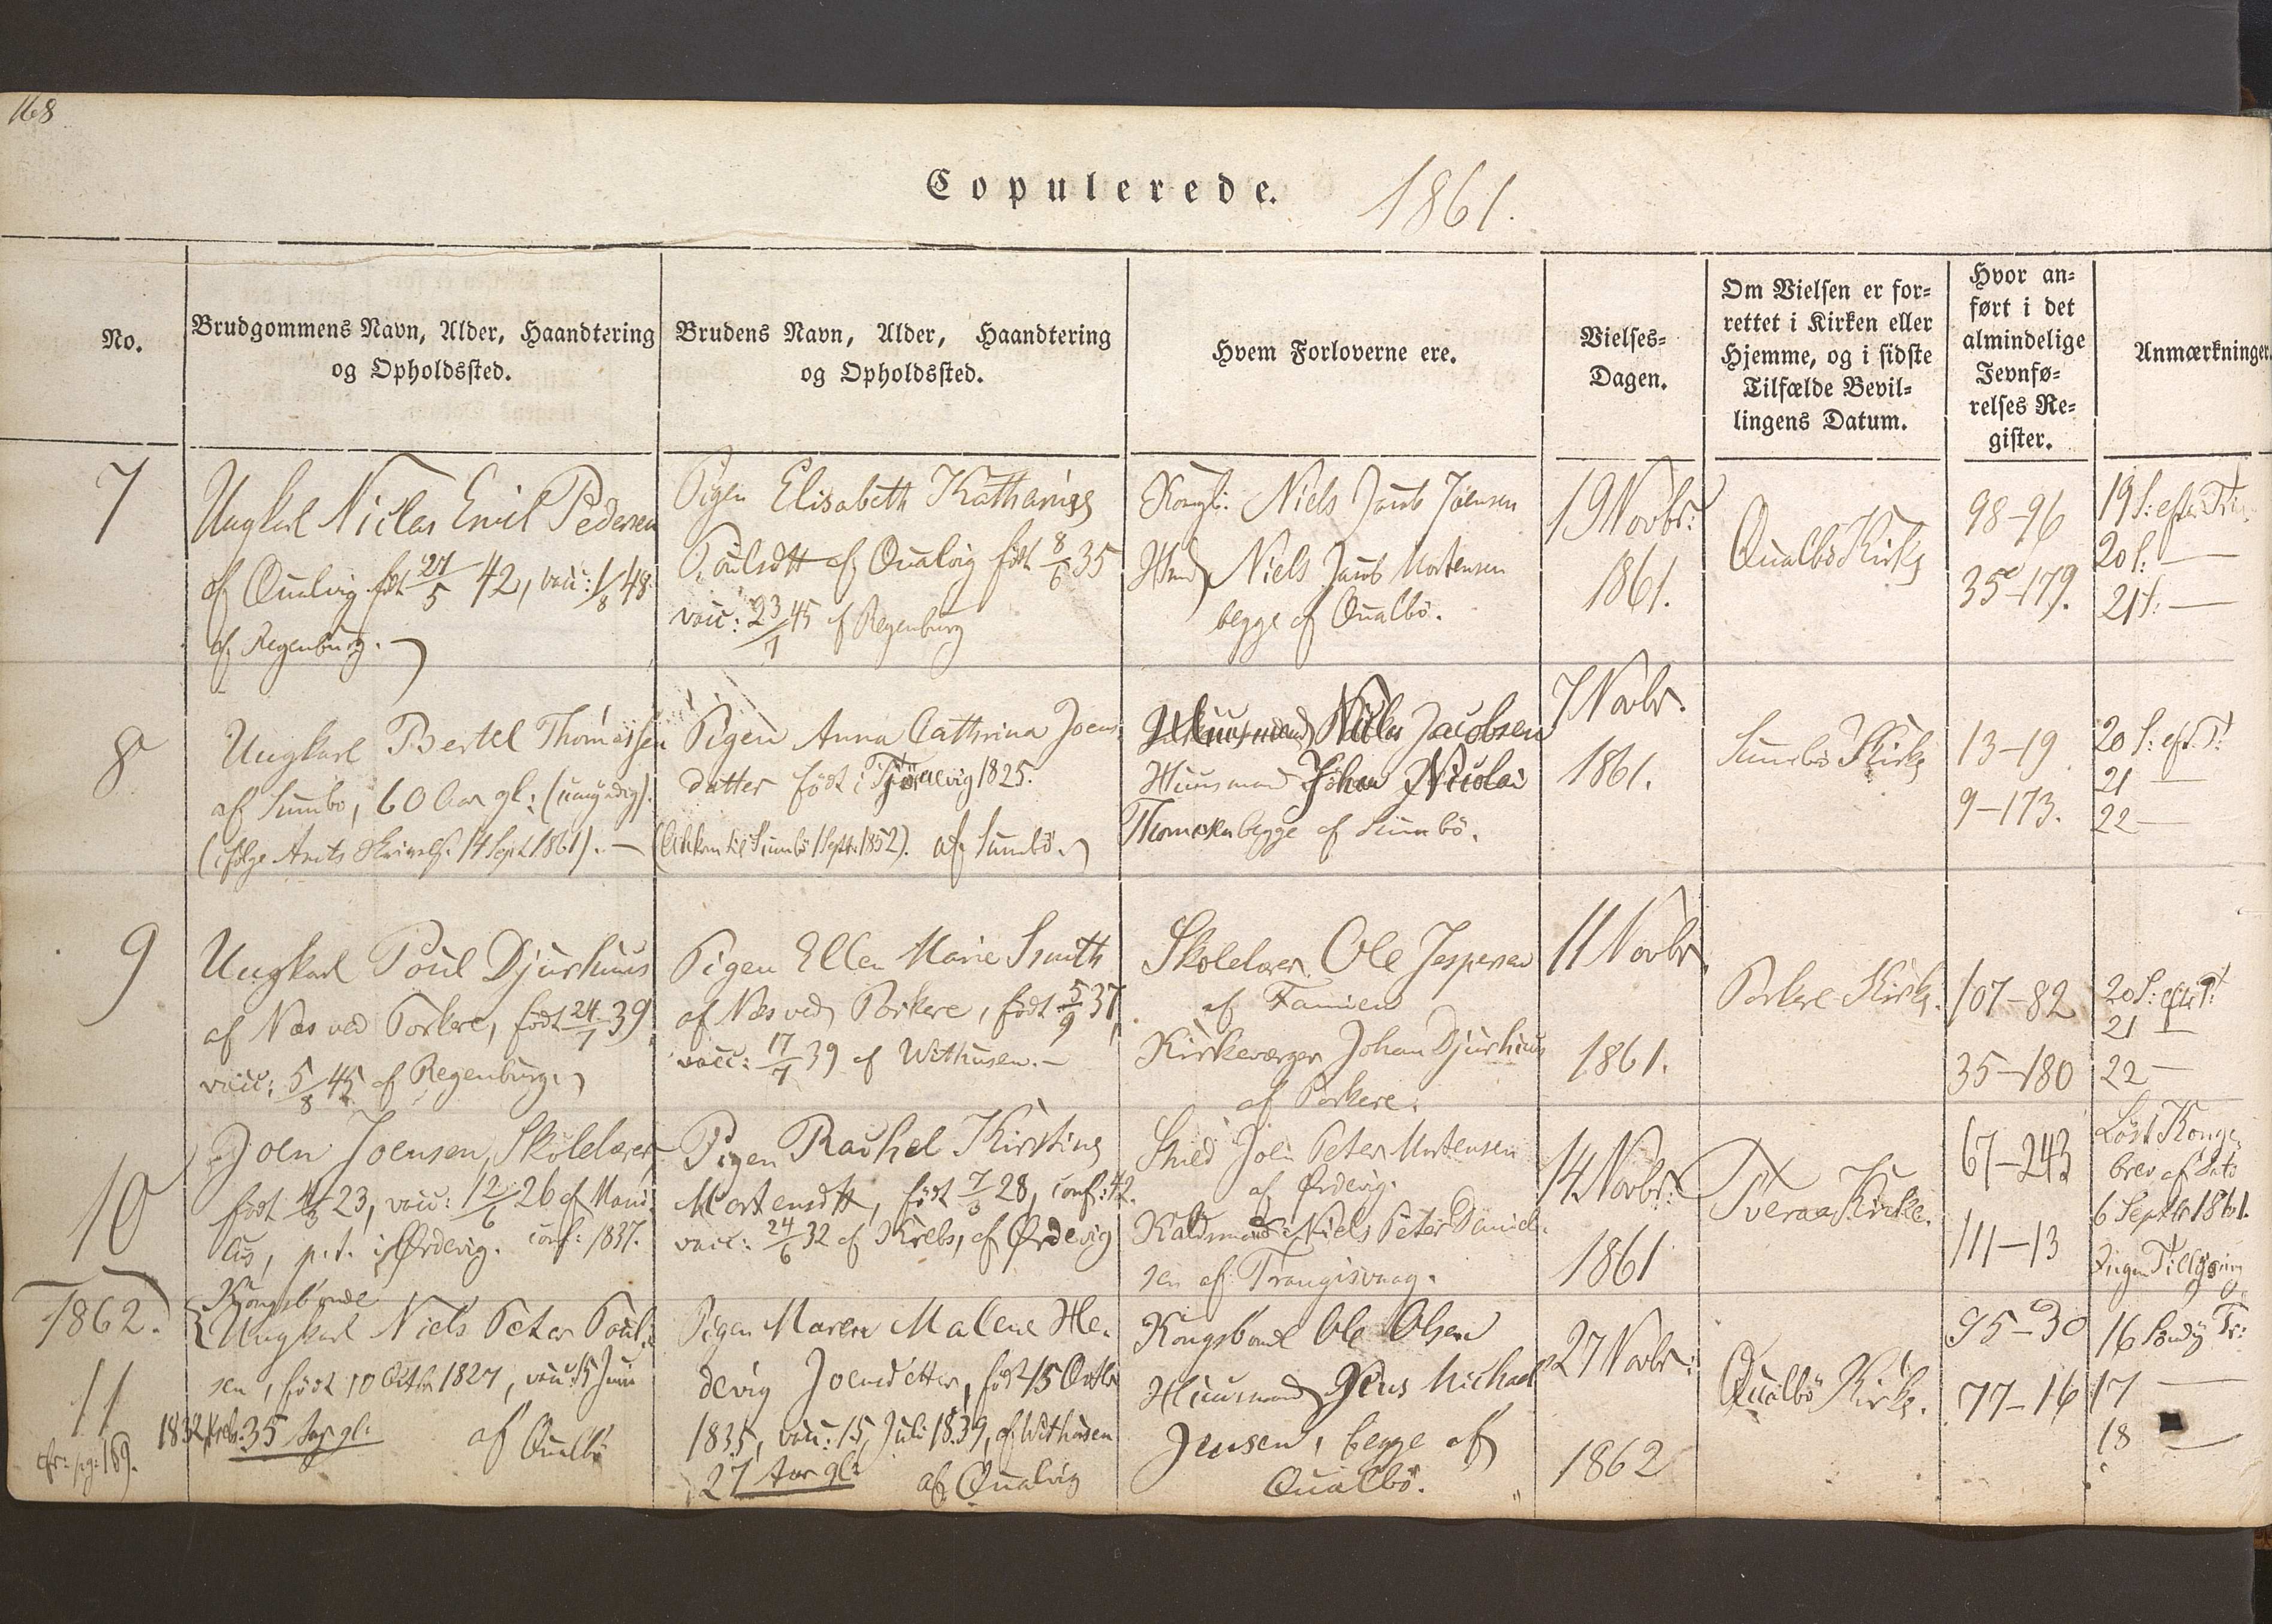 168
Copulerede. 1861.
No.
Brudgommens Navn, Alder, Haandtering
og Opholdssted.
Brudens Navn, Alder, Haandtering
og Opholdssted.
Hvem Forloverne ere.
Vielses-
Dagen.
Om Vielsen er for-
rettet i Kirken eller
Hjemme, og i sidste
Tilfælde Bevil-
lingens Datum.
Hvor an-
ført i det
almindelige
Jevnfø-
relses Re-
gister.
Anmærkninger.
7
Ungkarl Niclas Emil Pedersen
af Qualvig født 27/5 42, vacc: 1/8 48
af Regenburg.
Pigen Elisabeth Katharine
Poulsdtt af Qualvig født 8/6 35
vacc: 23/7 45 af Regenburg
Kongsb: Niels Jacob Joensen
Hmd Niels Jacob Mortensen
begge af Qualbö.
19 Novbr:
1861.
Qualbö Kirke
98-96
35-179.
19 S: eft: Trin.
20 S. —
21 S: —
8
Ungkarl Bertel Thomassen
af Sumbö, 60 Aar gl: (umyndig).
(ifølge Amts Skrivelse 14 Sept 1861). —
Pigen Anna Cathrina Joens-
datter født i Tjörnevig 1825.
til Sumbö 1 Septbr: 1852). af Sumbö.
Huusmand Niclas Jacobsen
Huusmand Johan Nicolai
Thomsen begge af Sumbö.
7 Novbr.
1861.
Sumbö Kirke
13-19
9-173.
20 S: eft. T:
21 —
22 —
9
Ungkarl Poul Djurhuus
af Næs ved Porkere, født 24/7 39,
vacc: 5/8 45 af Regenburg.
Pigen Ellen Marie Smith
af Næs ved Porkere, født 5/9 37,
vacc: 17/7 39 af Withusen. —
Skolelærer Ole Jespersen
af Famien
Kirkeværger Johan Djurhuus
af Porkere.
11 Novbr.
1861.
Porkere Kirke.
107-82
35-180
20 S: eft: T:
21 —
22 —
10
Joen Joensen, Skolelærer
født 23, vacc: 12/6 26 af Mani-
cus, p.t. i Ørdevig. conf: 1837.
Pigen Rachel Kirstine
Mortensdtt, født 28, conf: 42.
vacc: 24/6 32 af Krebs, af Ørdevig
Smed Joen Peter Mortensen
af Ørdevig.
Niels Peter Daniel-
sen af Trangisvaag.
14 Novbr:
1861
Tveraa Kirke.
67-243
111-13
Löst Konge-
brev af Dato
6 Septbr 1861.
Ingen Tillysning
1862.
11
cfr: pg: 169.
Kongsbonde
Ungkarl Niels Peter Poul-
sen, født 10 Octbr 1827, vacc: 15 Juni
1832 Krebs. 35 Aar gl: af Qualbö
Pigen Maren Malene He-
devig Joensdatter, født 15 Octbr
1835, vacc: 15 Juli 1839, af Withusen
27 Aar gl: af Qualvig
Kongsbonde Ole Olsen
Huusmand Jens Michael
Jensen, begge af
Qualbö.
27 Novbr:
1862
Qualbö Kirke.
95-30
77-16
16 Søndg Tr:
17 —
18 —